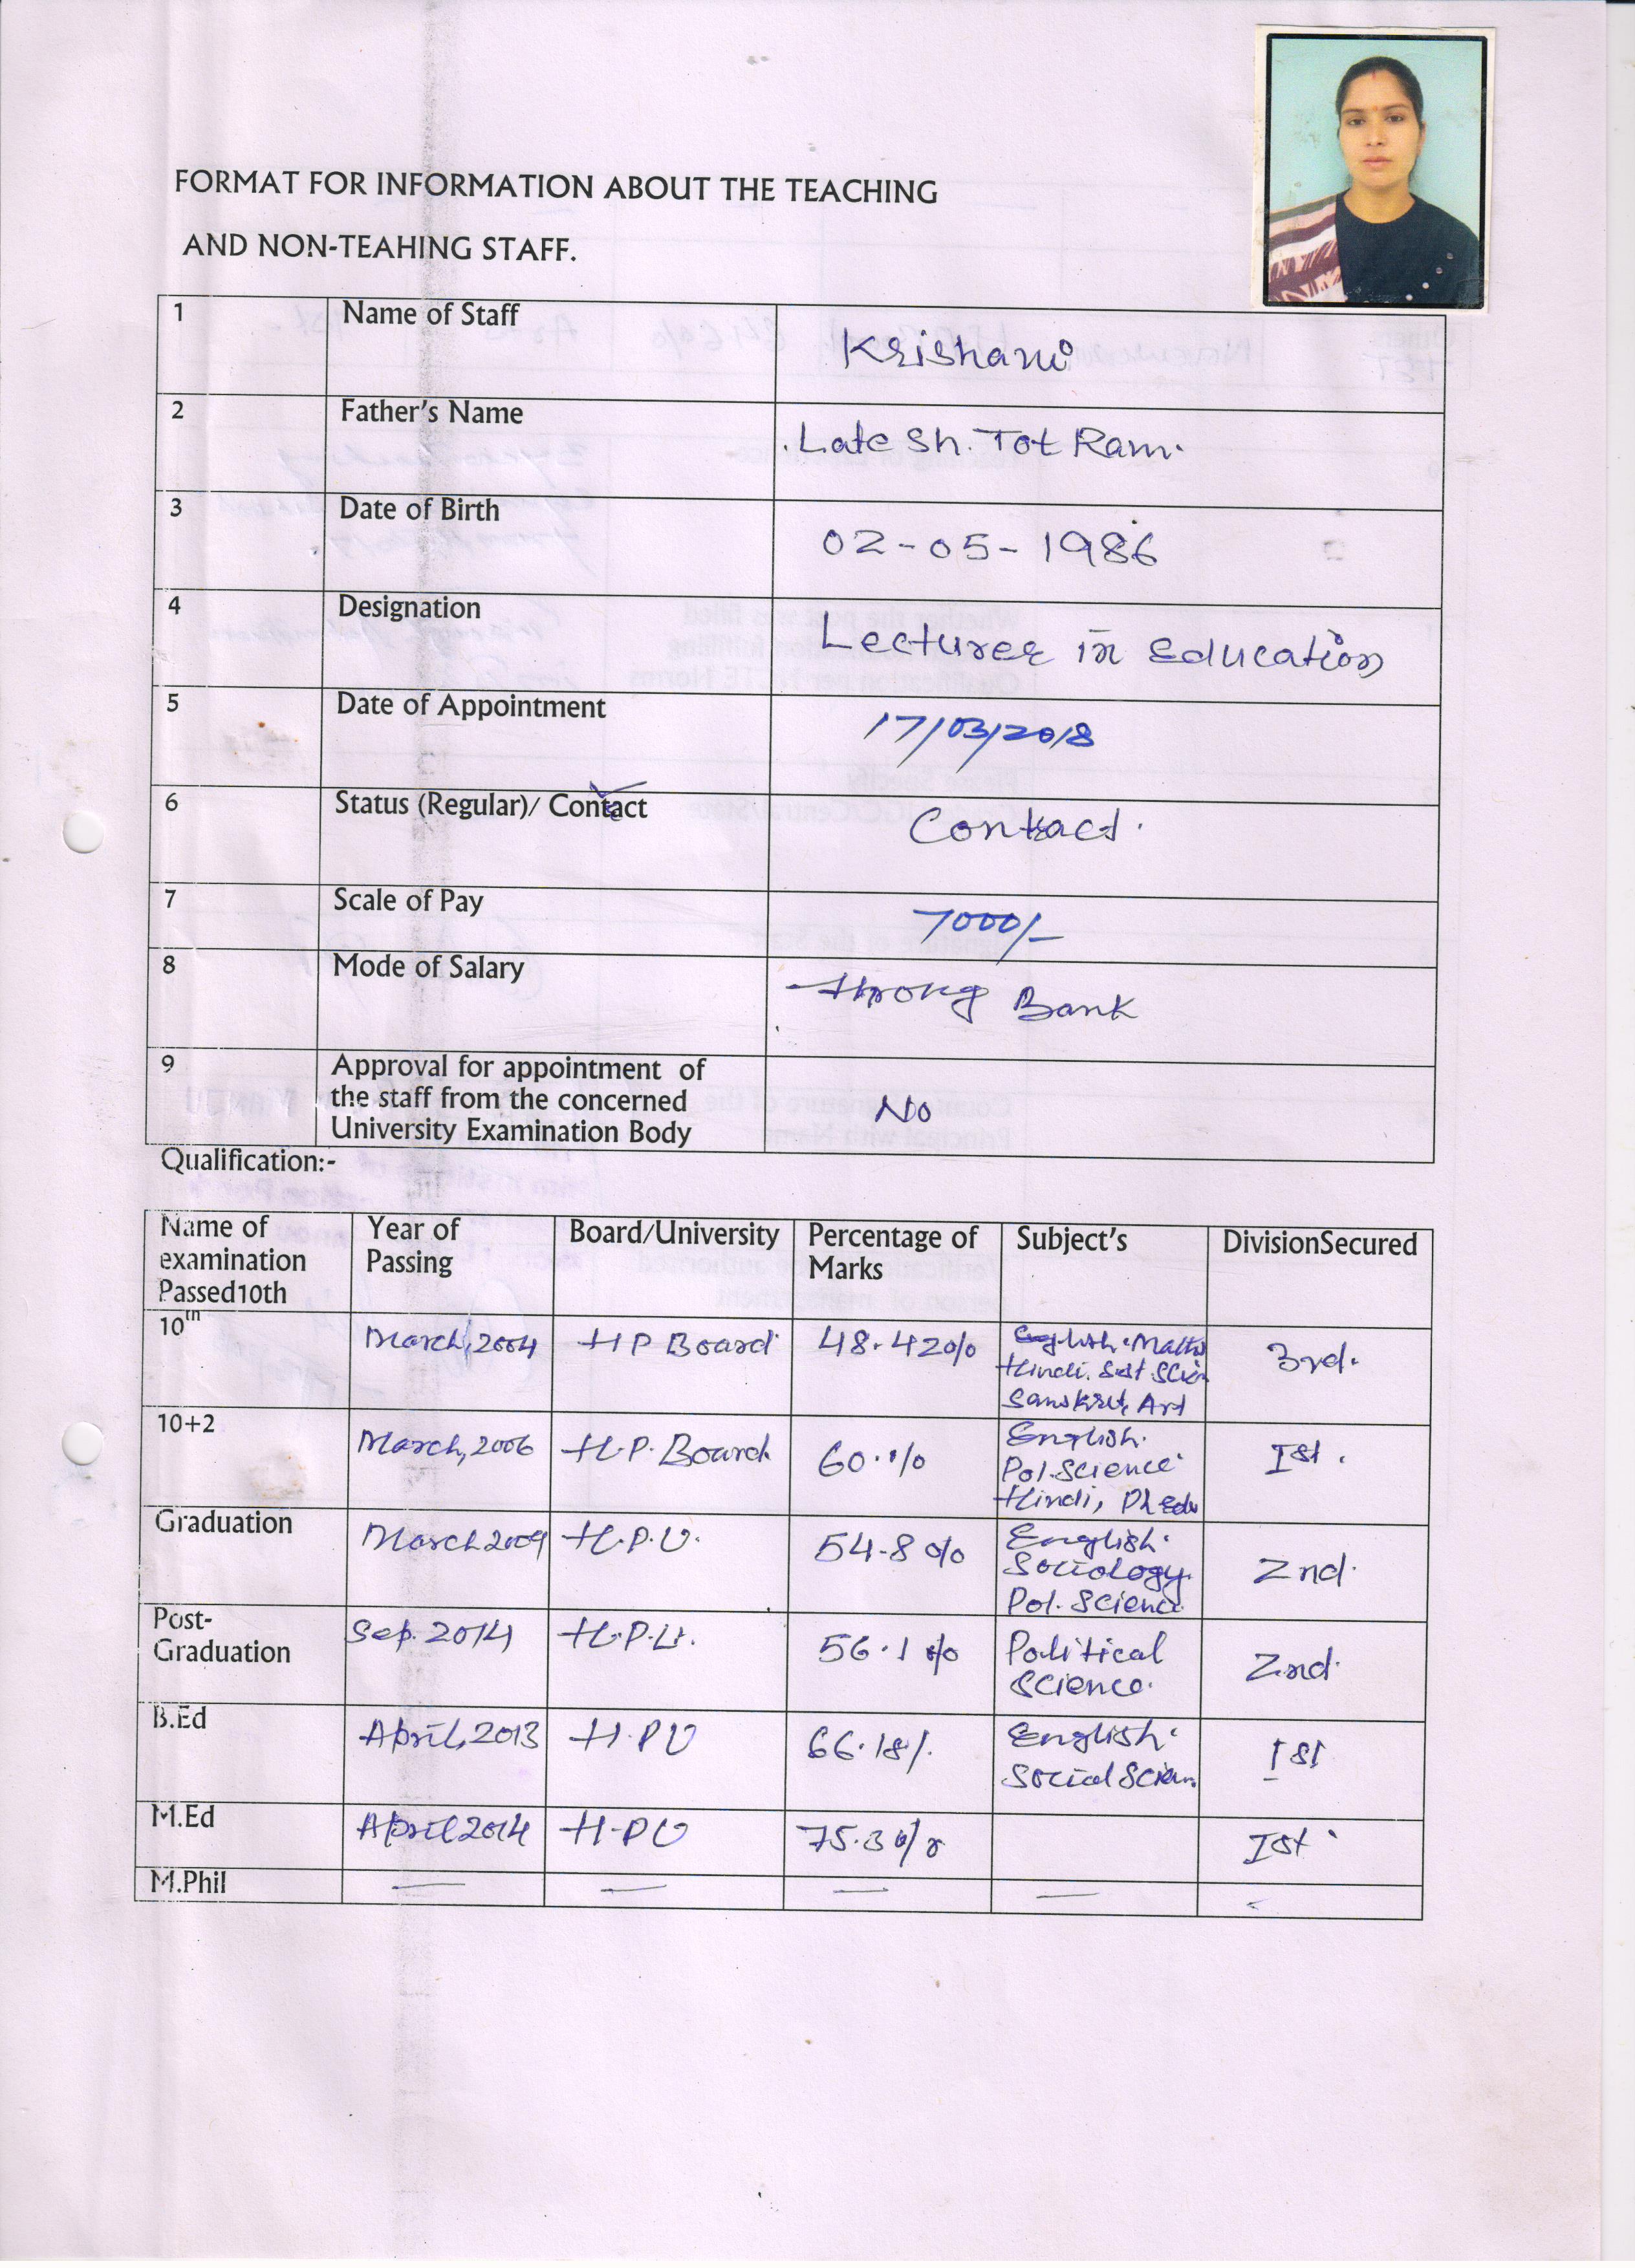 FORMAT FOR INFORMATION ABOUT THE TEACHING
AND NON-TEAHING STAFF.
1 Name of Staff Krishani
2 Father's Name Late Sh. Tot Ram.
3 Date of Birth 02-05-1986
4 Designation Lecturer in Education
5 Date of Appointment 17/03/2018
6 Status (Regular)/ Contact Contract.
7 Scale of Pay 7000/-
8 Mode of Salary throug Bank
9 Approval for appointment of
the staff from the concerned
University Examination Body No
Qualification:-
Name of
examination
Passed10th Year of
Passing Board/University Percentage of
Marks Subject's DivisionSecured
10th March, 2004 HP Board 48.42% English. Maths
Hindi. Scien
Sanskrit, Art 3rd.
10+2 March, 2006 H.P. Board 60.% English.
Pol. Science
Hindi, Ph Edu Ist.
Graduation March 2009 H.P.U. 54.8% English.
Sociology.
Pol. Science 2nd.
Post-
Graduation Sep. 2014 H.P.U. 56.1% Political
Science. 2nd.
B.Ed April, 2013 H.PU 66.18%. English.
Social Scien. Ist
M.Ed April 2014 H-PU 75.3% Ist
M.Phil — — — — -